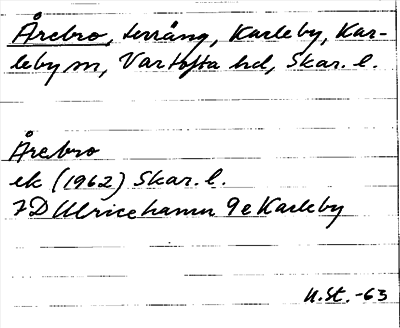 Årebro, terräng, Karleby, Kar-
leby sn, Vartofta hd, Skar. l.
Årebro
ek (1962) Skar. l.
7D Ulricehamn 9e Karleby
U.St. -63